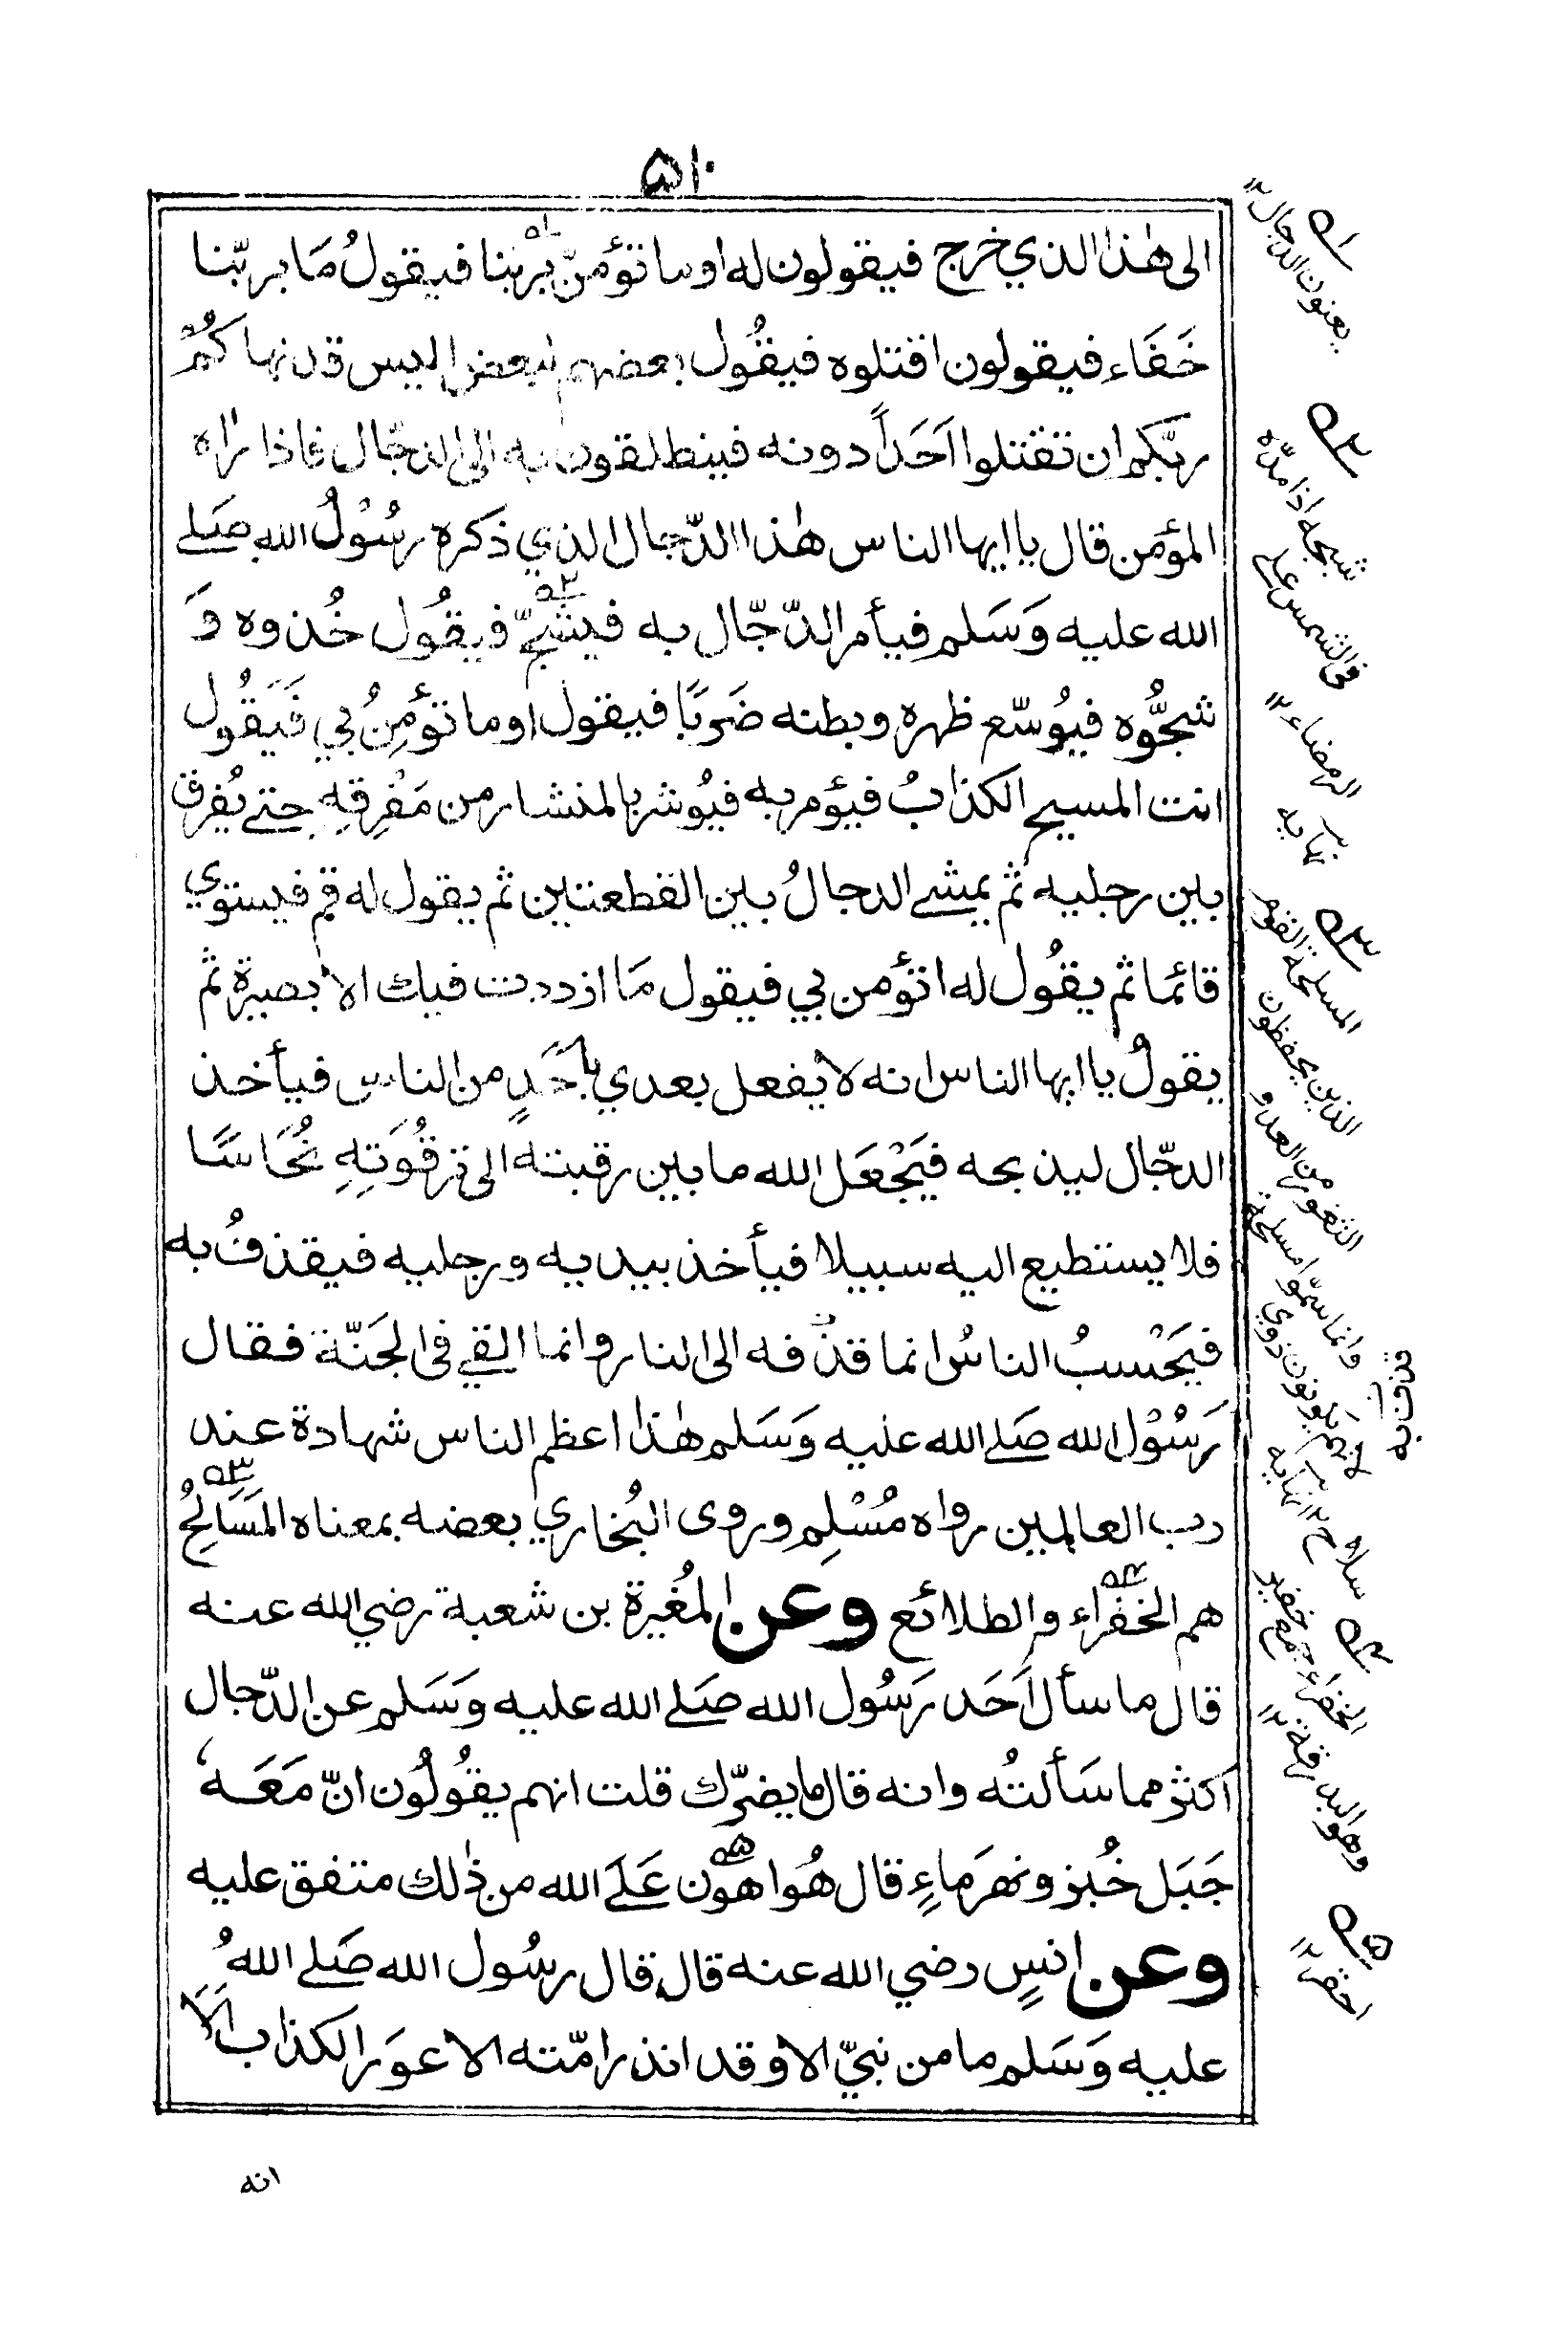 ۵۱۰
الى هٰذا الذي خرج فيقولون له اوما تؤمنّ بربنا فيقولُ مَا بربّنا
خَفَاء فيقولون اقتلوه فيقُول بعضهم لبعض اليس قد نهاكُم
ربّكم ان تقتلوا اَحَداً دونه فينطلقون به الى الدجّال فاذا رٰاه
المؤمن قال يا ايها الناس هٰذا الدّجال الذي ذكره رسُوْلُ الله صَلے
الله عليه وَسَلم فيأمر الدّجّال به فيشبّح فيقُول خُذوه وَ
شجُّوه فيُوسّع ظهره وبطنه ضَربًا فيقول اوما تؤمِنُ بي فَيَقُول
انت المسيح الكذابُ فيؤمر به فيُوشر بالمنشار من مَفْرِقِهِ حتے يُفرق
بين رجليه ثم يمشے الدجالُ بين القطعتين ثم يقول له قم فيستوي
قائما ثم يقُول له اتؤمن بي فيقول مَا ازددت فيك الا بصيرة ثم
يقولُ يا ايها الناس انه لا يفعل بعدي بأحَدٍ من الناس فيأخذ
الدجّال ليذبحه فَيَجْعَل الله ما بين رقبته الى ترقُوَتِهِ نُحَاسًا
فلا يستطيع اليه سبيلا فيأخذ بيديه ورجليه فيقذفُ به
فيَحْسبُ الناسُ انما قذفه الى النار وانما القے فى الجَنّة فقال
رَسُوْل الله صَلے الله عليه وَسَلم هٰذا اعظم الناس شهادة عند
رب العالمين رواه مُسْلِم وروى البُخاري بعضه بمعناه المَسَالحُ
هم الخفراء والطلائع وعن المُغيرة بن شعبة رضي الله عنه
قال ما سأل اَحَد رَسُول الله صَلے الله عليه وَسَلم عن الدّجال
اكثر مما سَألتُه وانه قال ما يضرّك قلت انهم يقُولُون انّ مَعَهٗ
جَبَل خُبز ونهرَ ماءٍ قال هُوا هَوْن عَلَے الله من ذٰلك متفق عليه
وعن انسٍ رضي الله عنه قال قال رسُول الله صَلے اللهُ
عليه وَسَلم ما من نبيّ الا وقد انذر امّته الاعوَر الكذاب اَلاَ
انه
۱ه يعنون الدجال ۱۲
۲ه شبحه اذا مدّه
فى الشمس على
الرمضاء ۱۲
نهايه
۳ه المسلحة القوم
الذين يحفظون
الثغور من العدو
وانما سمّوا مسلحة
لانهم يكونون ذوي
سلاح ۱۲ نهايه
۴ه الخفراء جمع خفير
وهو البدرقة ۱۲
۵ه احقر ۱۲